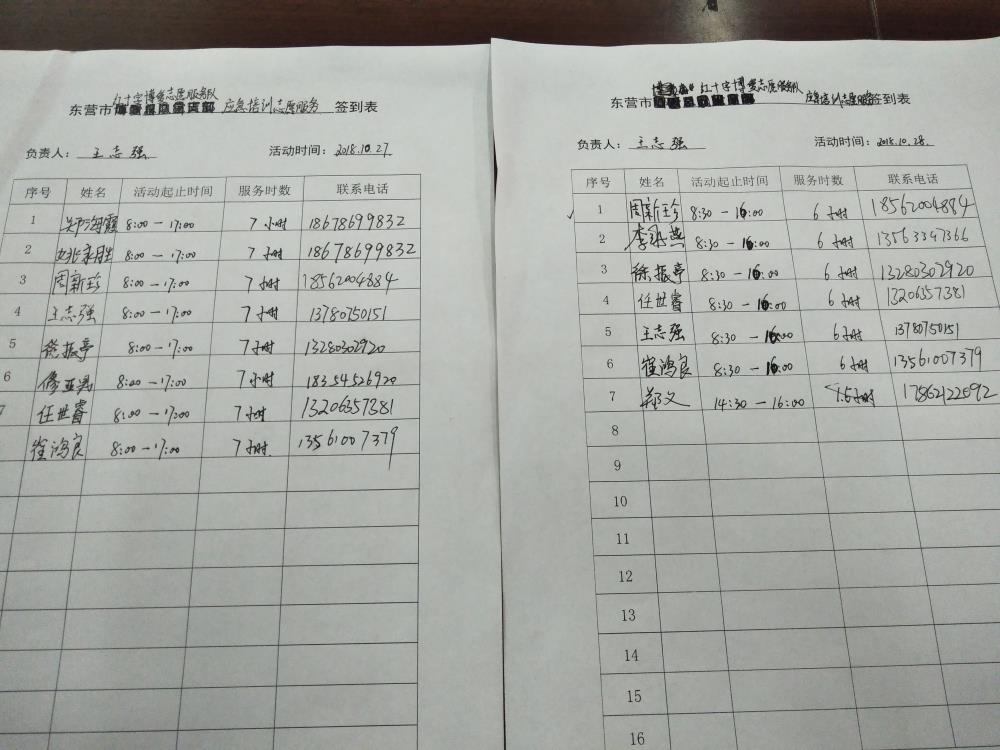 红十字博爱志愿服务队
东营市 应急培训志愿服务 签到表
负责人： 王志强 活动时间： 2018.10.27
序号 姓名 活动起止时间 服务时数 联系电话
1 郑海霞 8:00－17:00 7小时 18678699832
2 姚来胜 8:00－17:00 7小时 18678699832
3 周新珍 8:00－17:00 7小时 18562004884
4 王志强 8:00－17:00 7小时 13780750151
5 徐振亭 8:00－17:00 7小时 13280302920
6 8:00－17:00 7小时 18354526920
7 任世睿 8:00－17:00 7小时 13206357381
崔鸿良 8:00－17:00 7小时 13561007379
红十字博爱志愿服务队
东营市 应急培训志愿服务 签到表
负责人： 王志强 活动时间： 2018.10.28
序号 姓名 活动起止时间 服务时数 联系电话
1 周新珍 8:30－16:00 6小时 18562004884
2 8:30－16:00 6小时 13563347366
3 徐振亭 8:30－16:00 6小时 13280302920
4 任世睿 8:30－16:00 6小时 13206357381
5 王志强 8:30－16:00 6小时 13780750151
6 崔鸿良 8:30－16:00 6小时 13561007379
7 14:30－16:00 1.5小时 17862122092
8
9
10
11
12
13
14
15
16